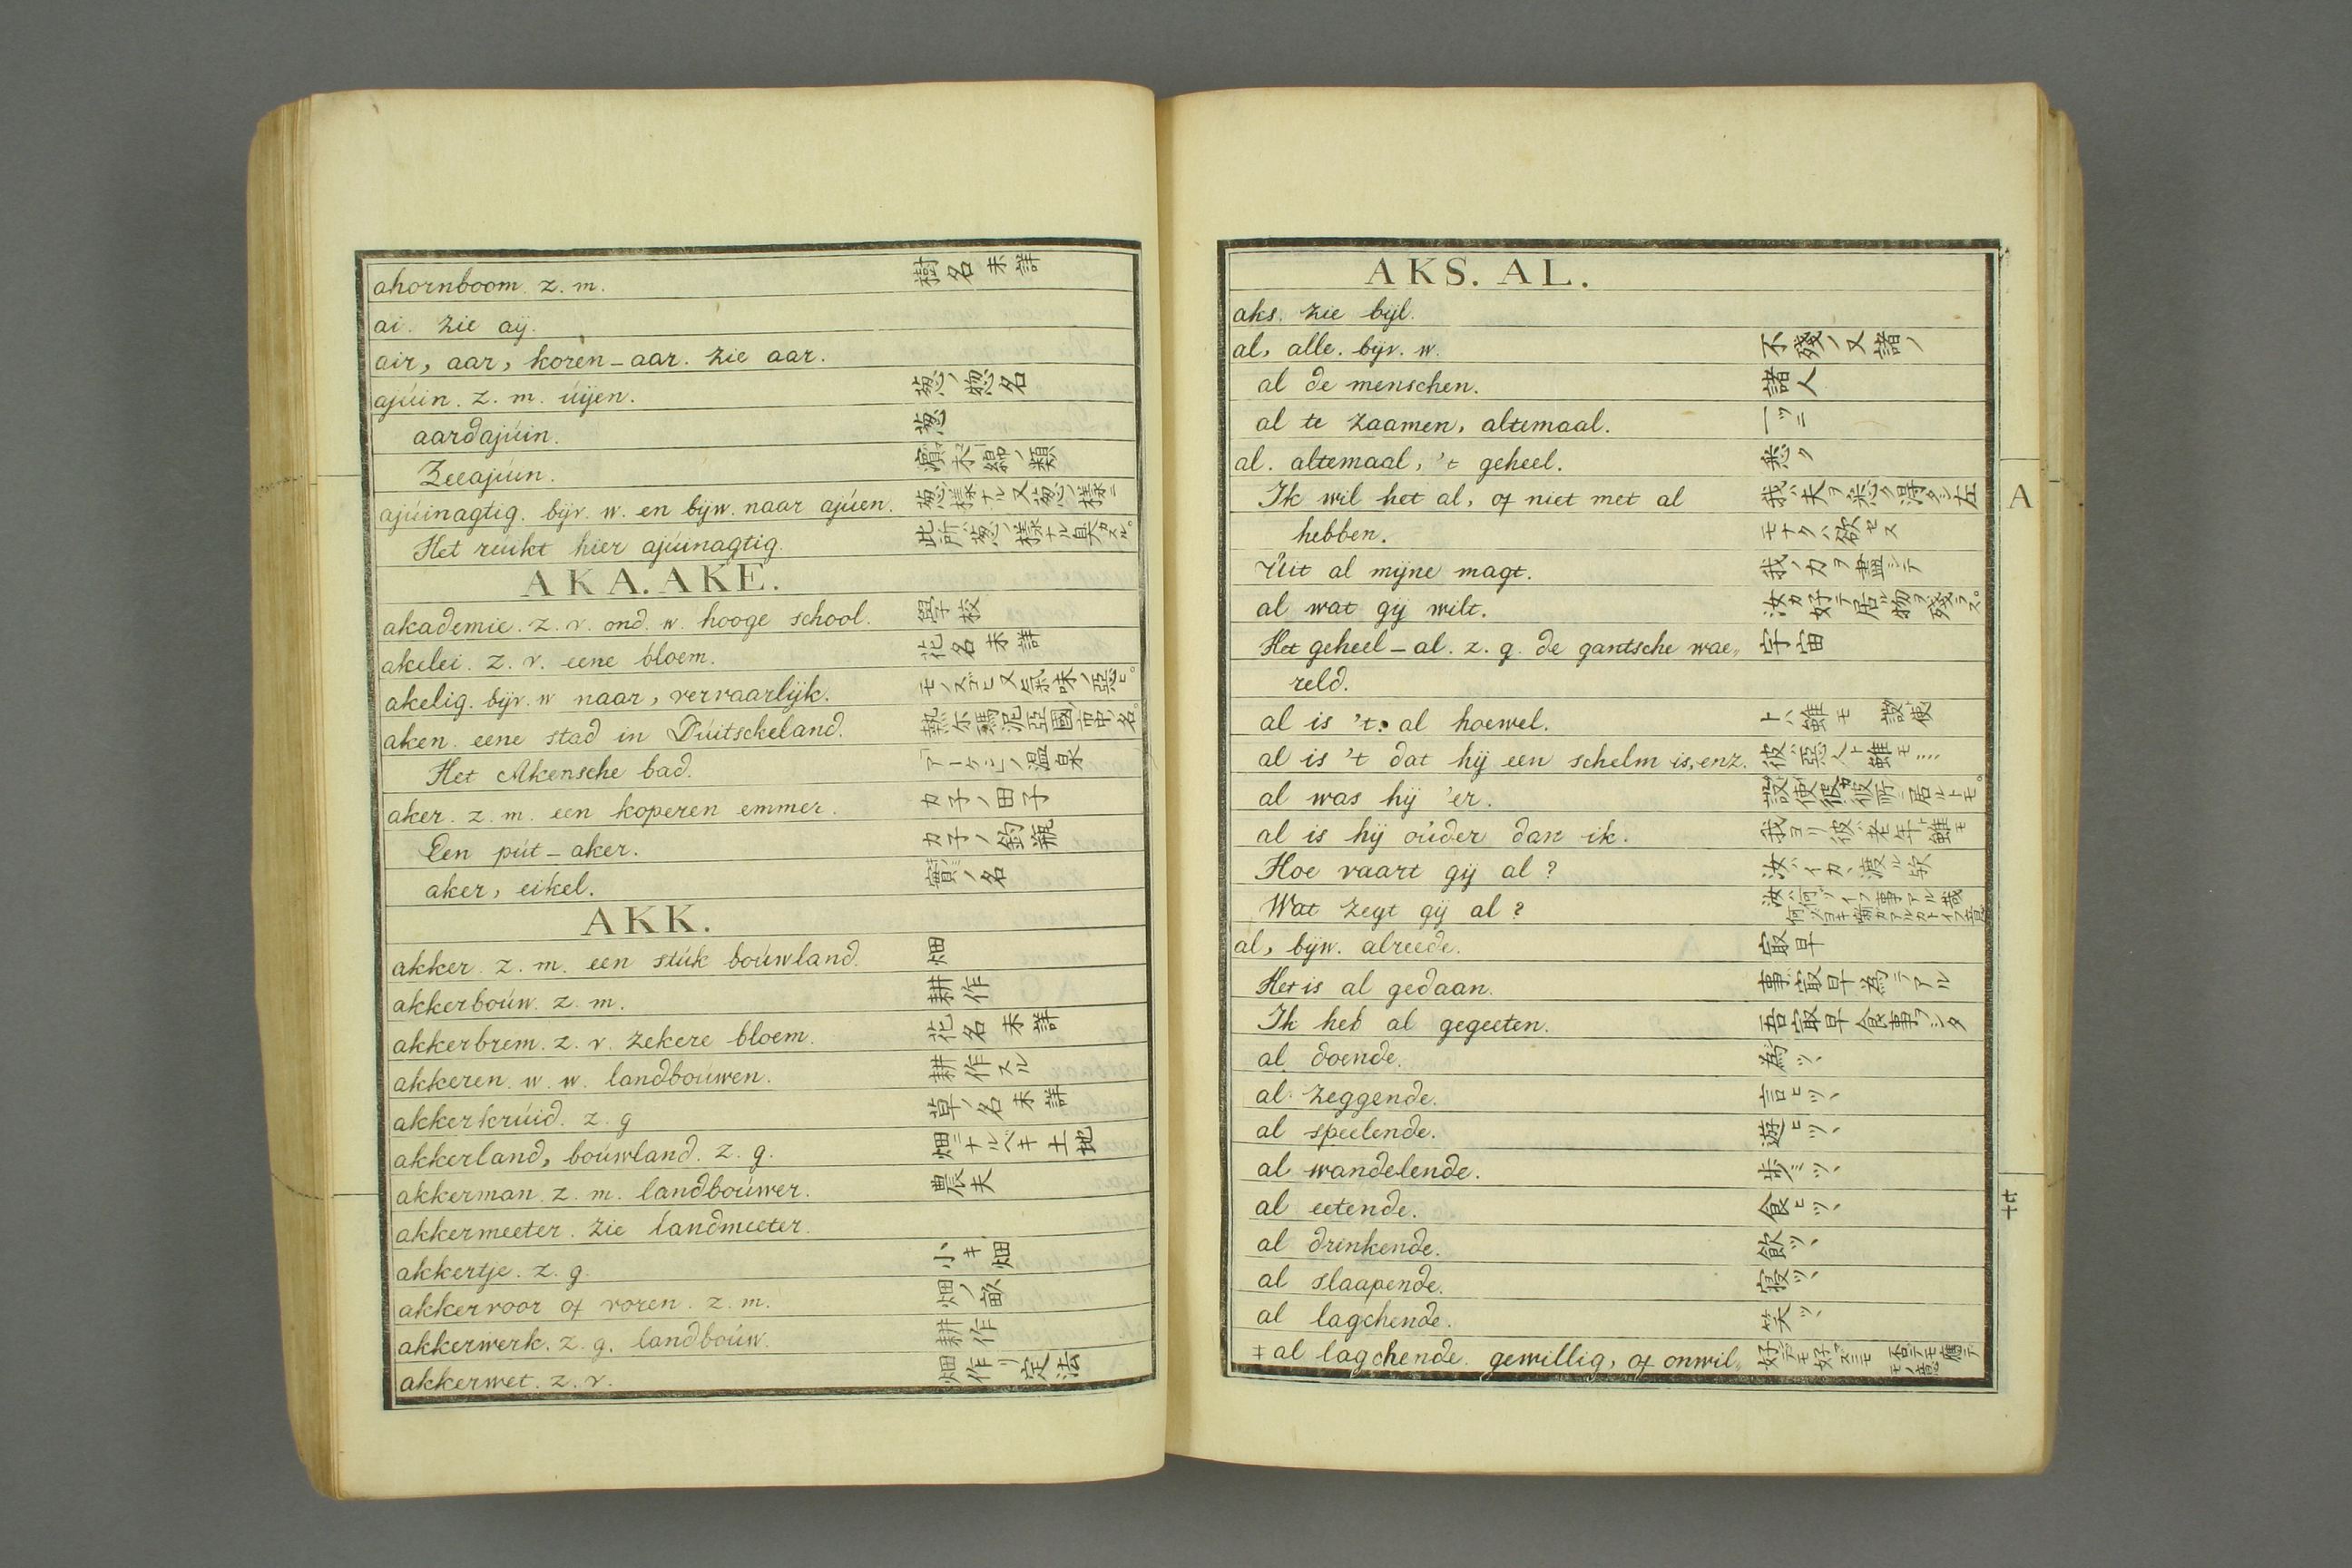 ahornboom. z. m. 樹名未詳
ai. zie aÿ.
air, aar, koren-aar. zie aar.
ajúin. z. m. úijen. 葱ノ惣名
aardajúin. 葱
Zeeajúin. 濱木綿ノ類
ajúinagtig. bijv. w. en bijw. naar ajúen. 葱様ナル又葱ノ様ニ
Het rúikt hier ajúinagtig. 此所ハ葱ノ様ナル臭カスル。
AKA. AKE.
akademie. z. v. ond. w. hooge school. 學校
akelei. z. v. eene bloem. 花名未詳
akelig. bijv. w naar, vervaarlijk. モノスゴヒ又氣味ノ惡ヒ。
aken. eene stad in Dúitscheland. 熱尓瑪泥亞國ノ市中ノ名。
Het Akensche bad. アーケンヒノ温泉
aker. z. m. een koperen emmer. カ子ノ田子
Een pút-aker. カ子ノ釣瓶
aker, eikel. 實ノ名
AKK.
akker. z. m. een stúk boúwland. 畑
akkerboúw. z. m. 耕作
akkerbrem. z. v. zekere bloem. 花名未詳
akkeren. w. w. landboúwen. 耕作スル
akkerkrúid. z. g 草ノ名未詳
akkerland, boúwland. z. g. 畑ニナルベキ土地
akkerman. z. m. landboúwer. 農夫
akkermeeter. zie landmeeter.
akkertje. z. g. 小キ畑
akkervoor of voren. z. m. 畑ノ畝
akkerwerk. z. g. landboúw. 耕作
akkerwet. z. v. 畑作リ定法
AKS. AL.
aks. zie bijl.
al, alle. bijv. w. 不殘ノ又諸ノ
al de menschen. 諸人
al te zaamen, altemaal. 一ツニ
al. altemaal, 't geheel. 悉ク
Ik wil het al, of niet met al 我ハ夫ヲ悉ク得タシ左
hebben. モナクハ欲セス
Uit al mijne magt. 我ノ力ヲ盡シテ
al wat gij wilt. 汝カ好テ居ル物ヲ殘ラス。
Het geheel-al. z. g. de gantsche wae„ 宇宙
reld.
al is 't. al hoewel. トハ雖モ 設使
al is 't dat hij een schelm is, enz. 彼ハ惡人ト雖モ....
al was hij 'er. 設使彼カ彼所ニ居ルトモ。
al is hij oúder dan ik. 我ヨリ彼ハ老年ト雖モ
Hoe vaart gij al? 汝ハイカヽ渡ル欤
Wat zegt gij al? 汝ハ何ヲイフ事アル哉
al, bijw. alreede. 最早
Het is al gedaan. 事最早為テアル
Ik heb al gegeeten. 吾最早食事ヲシタ
al doende. 為ツヽ
al zeggende. 言ヒツヽ
al speelende. 遊ヒツヽ
al wandelende. 歩ミツヽ
al eetende. 食ヒツヽ
al drinkende. 飲ツヽ
al slaapende. 寝ツヽ
al lagchende. 笑ツヽ
‡ al lagchende. gewillig, of onwil„
A